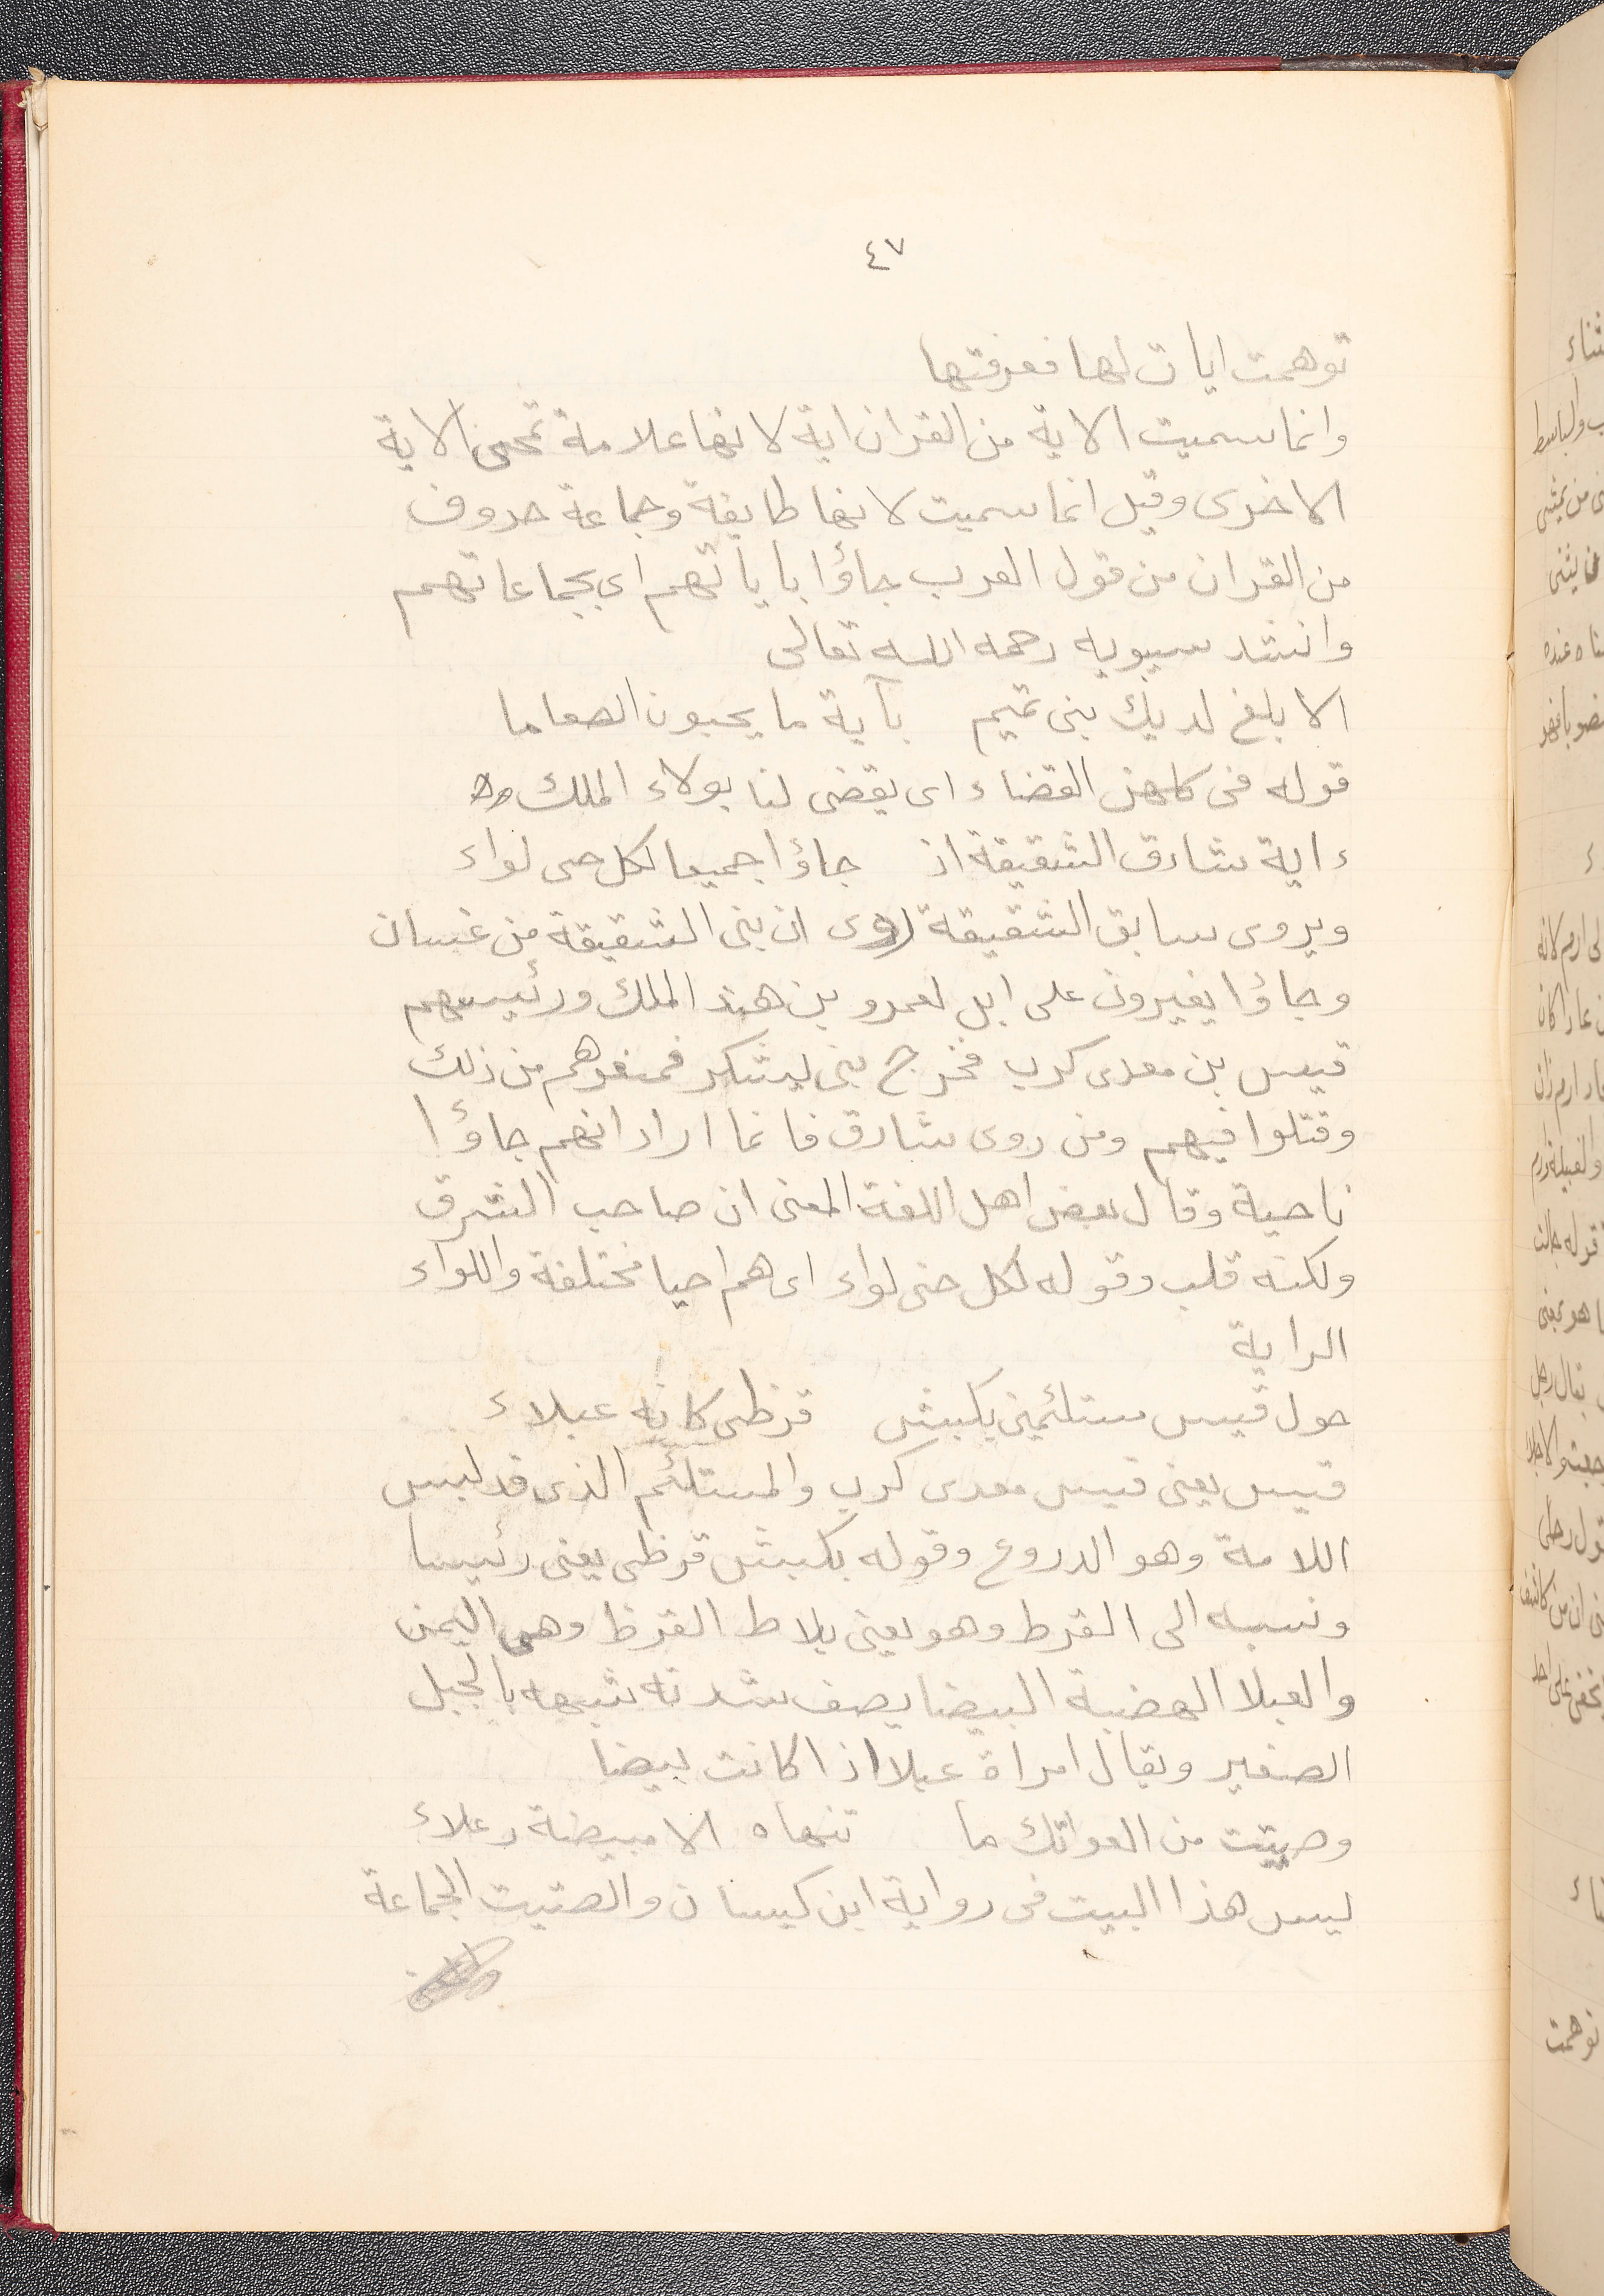 ٤٧
توهمت ايات لها فعرفتها
وانما سميت الاية من القران اية لانها علامة تمحى الاية
الاخرى وقيل انما سميت لانها طايفة وجماعة حروف
من القران من قول العرب جاؤا باياتهم اى بجماعاتهم
وانشد سيبويه رحمه الله تعالى
الا بلغ لديك بنى تميم بآية ما يحبون الصعاما
قوله فى كلهن القضاء اى يقضى لنا بولاء الملك
ءاية شارق الشقيقة اذ جاؤا جميعا لكل حى لواء
ويروى سابق الشقيقة روى ان بنى الشقيقة من غسان
وجاؤا يغيرون على ابل لعمرو بن هند الملك ورئيسهم
قيس بن معدى كرب فخرج بنى يشكر فمنعوهم من ذلك
وقتلوا فيهم ومن روى شارق فانما اراد انهم جاؤا
ناحية وقال بعض اهل اللغة المعنى ان صاحب الشرق
ولكنه قلب وقوله لكل حى لواء اى هم احيا مختلفة واللواء
الراية
حول قيس مستلئمين بكبش قرظى كانه عبلاء
قيس يعنى قيس معدى كرب والمستلئم الذى قد لبس
اللامة وهو الدروع وقوله بكبش قرظى يعنى رئيسا
ونسبه الى القرط وهو يعنى بلاط القرظ وهى اليمن
والعبلا الهضبة البيضا يصف شدته شبهه بالجبل
الصغير ويقال امراة عبلا اذا كانت بيضا
وصتيت من العواتك ما تنهاه الا مبيضة رعلاء
ليس هذا البيت فى رواية ابن كيسان والصتيت الجماعة